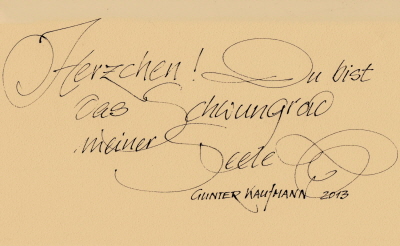 Herzchen! Du bist
das Schwungrad
meiner Seele
GUNTER KAUFMANN 2013